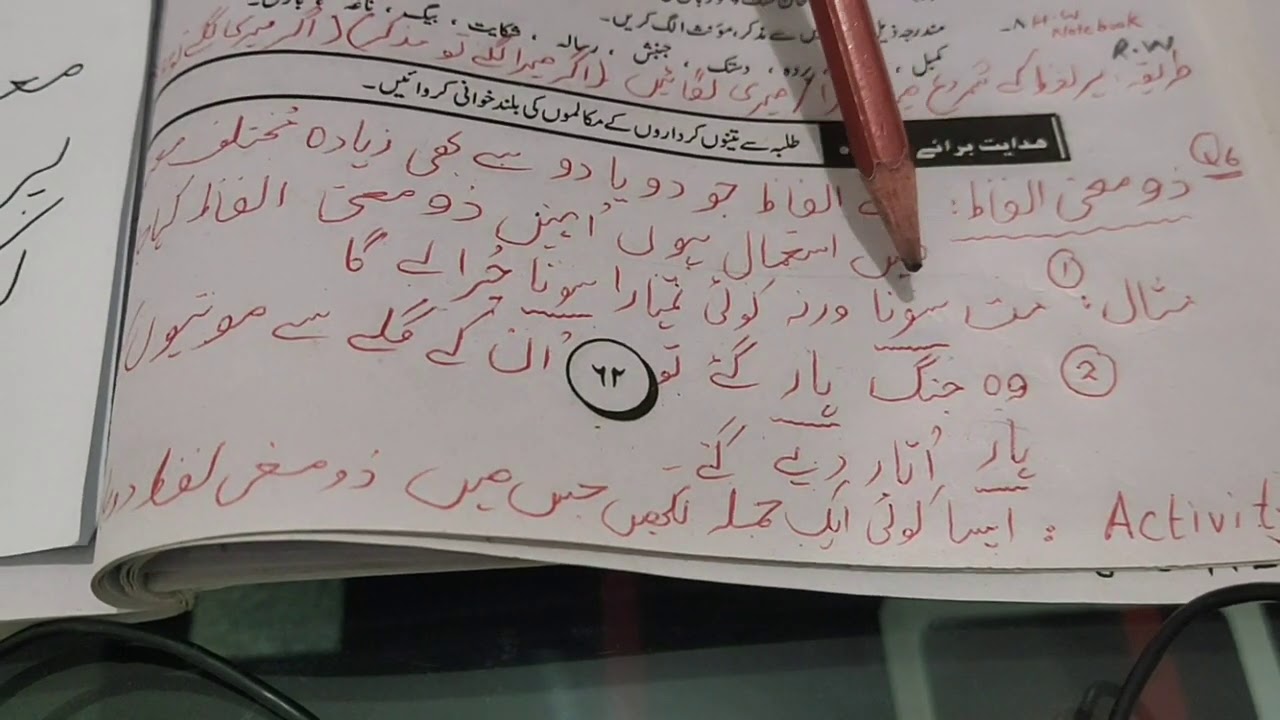 مندرجہ ذیل میں سے مذکر، مؤنث الگ کریں۔
۸۔ H.W Notebook
کمبل ، پردہ ، دستک ، جنبش ، رسالہ ، شکایت ، بیگ ،
R.W
طریقہ: ہر لفظ کے شروع میرا/میری لگائیں (اگر میرا لگے تو مذکر) (اگر میری لگے
ہدایت برائے
طلبہ سے تینوں کرداروں کے مکالموں کی بلند خوانی کروائیں۔
Q6
ذو معنی الفاظ: الفاظ جو دو یا دو سے بھی زیادہ مختلف
میں استعمال ہوں اُنہیں ذو معنی الفاظ کہا
مثال: ① مت سونا ورنہ کوئی تمہارا سونا چُرا لے گا
② وہ جنگ ہار گئے تو اُن کے گلے سے موتیوں
۶۲
ہار اُتار دیے گئے۔
Activit : ایسا کوئی ایک جملہ لکھیں جس میں ذو معنی لفظ